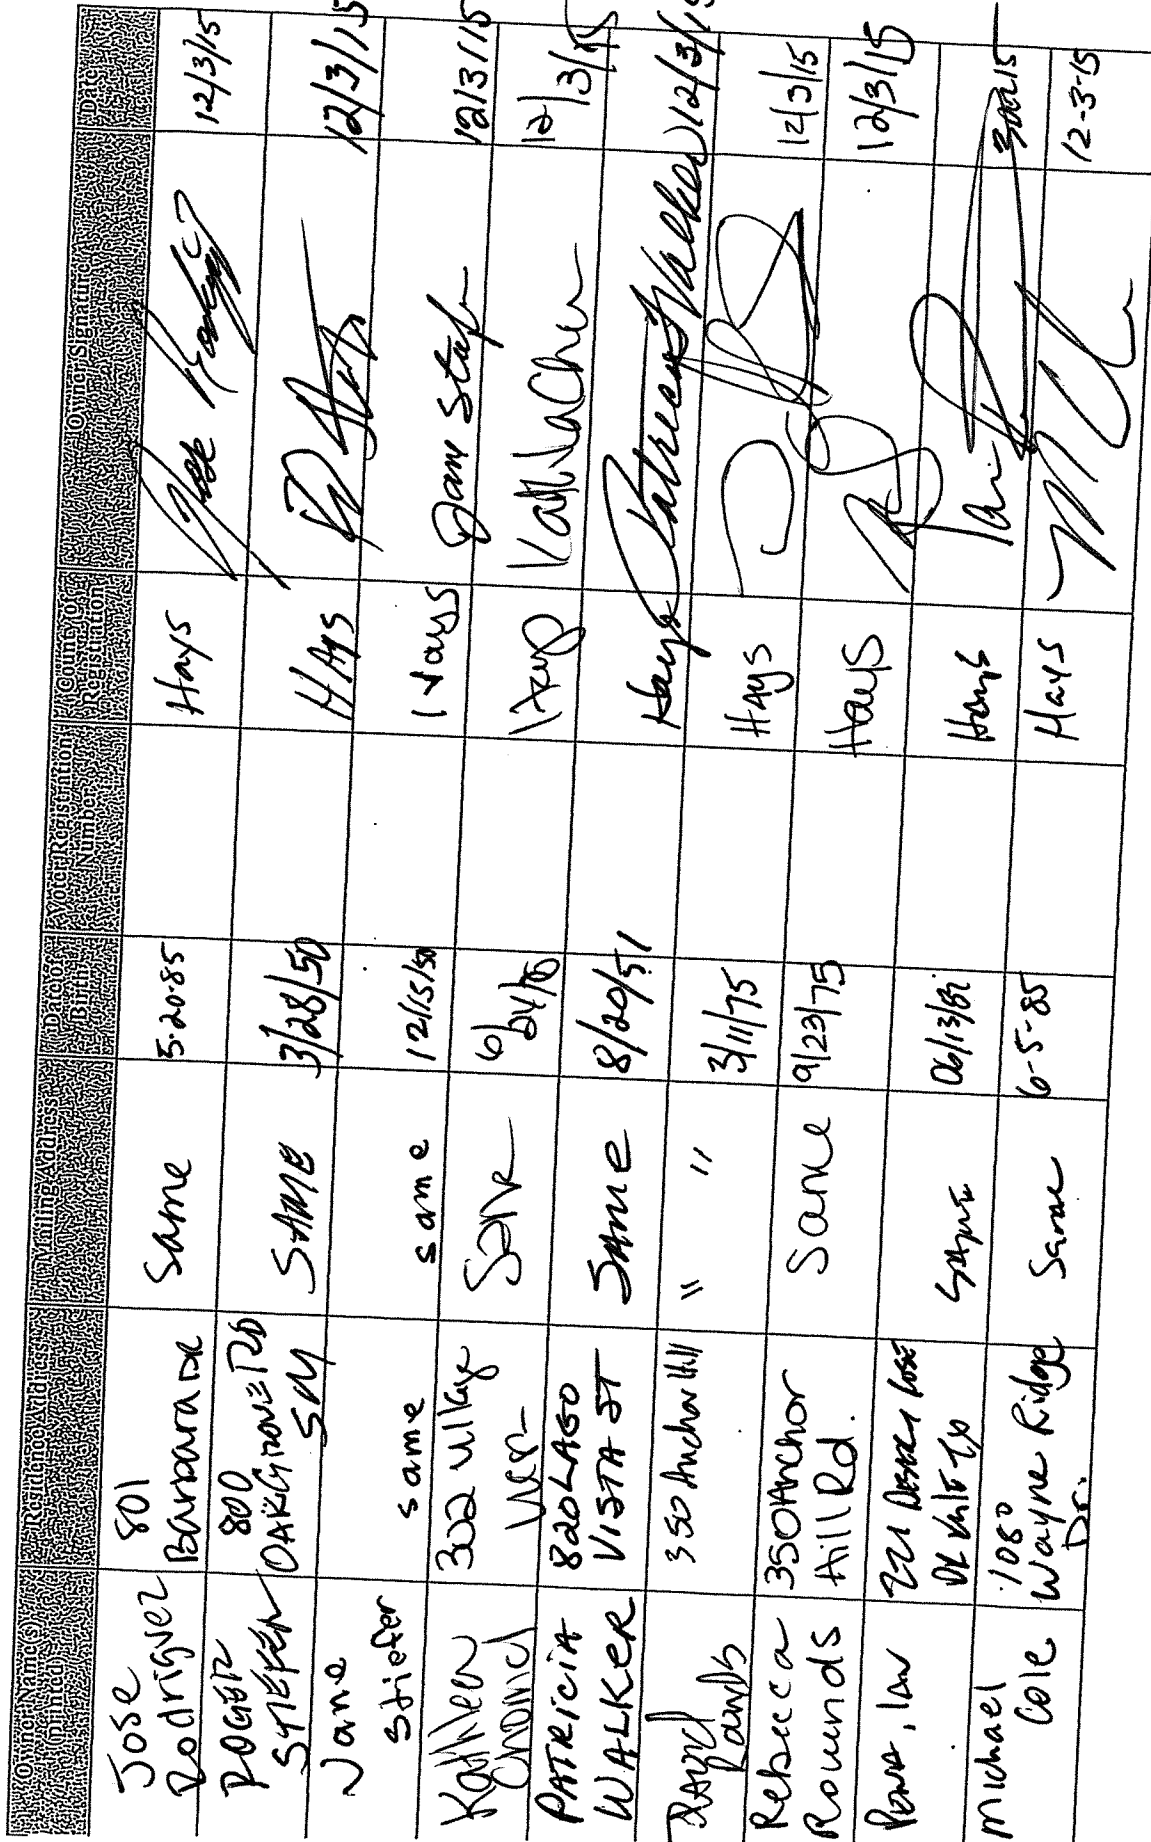 Owner Name(s) (printed) Residence Address Mailing Address Date of Birth Voter Registration Number (County of Registration) Owner Signature Date
Jose Rodriguez
801
Barbara DR
Same
5-20-85
Hays
12/3/15
ROGER
800
OAKGROVE RD
SM
SAME
3/28/50
HAYS
12/3/15
Jane
Stiefer
same
same
12/15/50
Hays
12/3/15
Kathleen
302
6/24/
12/3/15
PATRICIA
WALKER
820 LAGO
VISTA ST
SAME
8/20/51
Hays
Patricia Walker
12/3/15
350 Anchor Hill
" "
3/11/75
Hays
12/3/15
Rebecca
Rounds
350 Anchor
Hill Rd.
Same
9/23/75
Hays
12/3/15
Penn, Ian
221
DR
TX
Hays
Michael
Cole
1080
Wayne Ridge
Dr.
Same
6-5-85
Hays
12-3-15